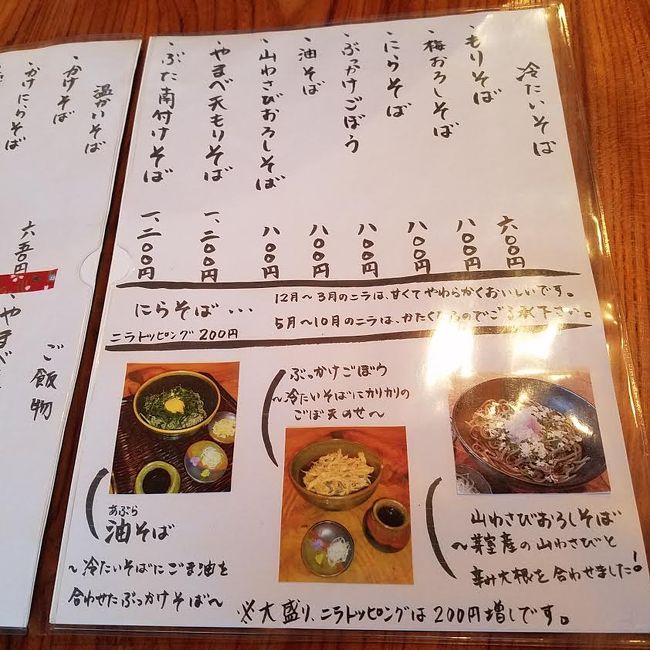 冷たいそば
・もりそば 六〇〇円
・梅おろしそば 八〇〇円
・にらそば 八〇〇円
・ぶっかけごぼう 八〇〇円
・油そば 八〇〇円
・山わさびおろしそば 八〇〇円
・やまべ天もりそば 一、二〇〇円
・ぶた南付けそば 一、二〇〇円
にらそば・・・
12月～3月のニラは、甘くてやわらかくおいしいです。
5月～10月のニラは、かたくなるのでご了承下さい。
ニラトッピング 200円
ぶっかけごぼう
～冷たいそばにカリカリの
ごぼ天のせ～
あぶら
油そば
～冷たいそばにごま油を
合わせたぶっかけそば～
山わさびおろしそば
～芽室産の山わさびと
辛み大根を合わせました!
※大盛り、ニラトッピングは200円増しです。
温かいそば
・かけそば
・かけにらそば
六五〇円
ご飯物
・やまべ